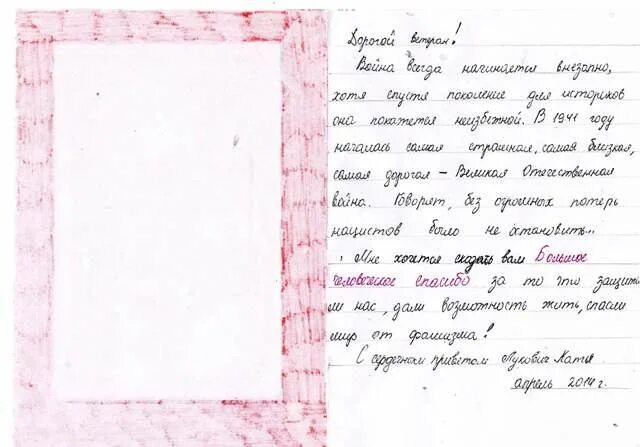 Дорогой ветеран!
Война всегда начинается внезапно,
хотя спустя поколение для историков
она покажется неизбежной. В 1941 году
началась самая страшная, самая близкая,
самая дорогая – Великая Отечественная
война. Говорят, без огромных потерь
нацистов было не остановить...
Мне хочется сказать вам Большое
человеческое спасибо за то что защити
ли нас, дали возможность жить, спасли
мир от фашизма!
С сердечным приветом Лукович Катя
апрель 2014 г.